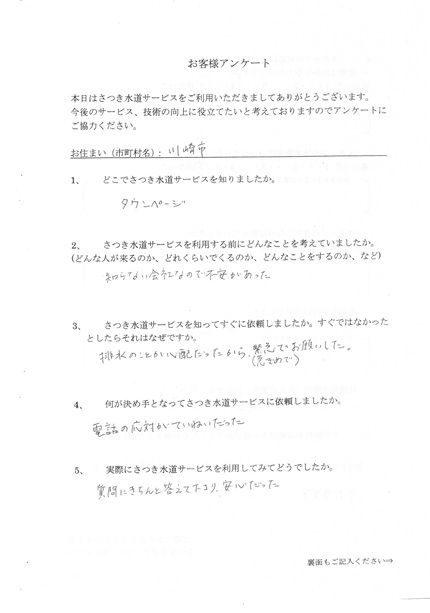 お客様アンケート
本日はさつき水道サービスをご利用いただきましてありがとうございます。
今後のサービス、技術の向上に役立てたいと考えておりますのでアンケートに
ご協力ください。
お住まい（市町村名）：川崎市
1、 どこでさつき水道サービスを知りましたか。
タウンページ
2、 さつき水道サービスを利用する前にどんなことを考えていましたか。
(どんな人が来るのか、どれくらいでくるのか、どんなことをするのか、など)
知らない会社なので不安があった
3、 さつき水道サービスを知ってすぐに依頼しましたか。すぐではなかった
としたらそれはなぜですか。
排水のことが心配だったから、緊急でお願いした。
(急ぎめで)
4、 何が決め手となってさつき水道サービスに依頼しましたか。
電話の応対がていねいだった
5、 実際にさつき水道サービスを利用してみてどうでしたか。
質問にきちんと答えて下さり、安心だった
裏面もご記入ください⇒